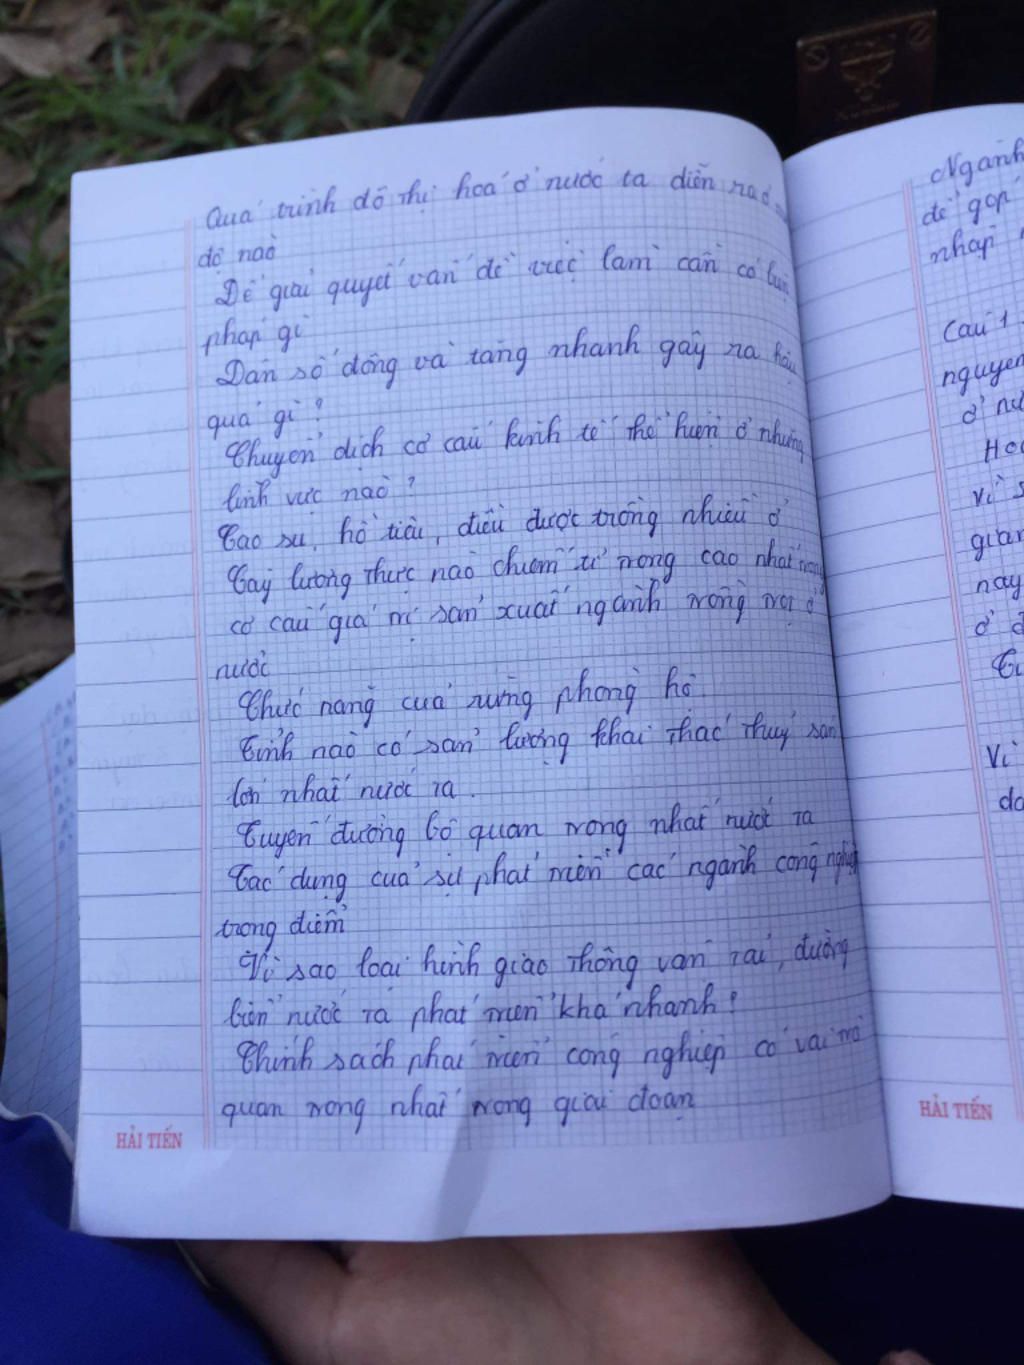 Quá trình đô thị hoá ở nước ta diễn ra ở
độ nào
Để giải quyết vấn đề việc làm cần có biện
pháp gì
Dân số đông và tăng nhanh gây ra hậu
quả gì?
Chuyển dịch cơ cấu kinh tế thể hiện ở những
lĩnh vực nào?
Cao su, hồ tiêu, điều được trồng nhiều ở
Cây lương thực nào chiếm tỉ trọng cao nhất trong
cơ cấu giá trị sản xuất ngành trồng trọt ở
nước
Chức năng của rừng phòng hộ.
Tỉnh nào có sản lượng khai thác thuỷ sản
lớn nhất nước ta.
Tuyến đường bộ quan trọng nhất nước ta
Tác dụng của sự phát triển các ngành công nghiệp
trọng điểm
Vì sao loại hình giao thông vận tải, đường
biển nước ta phát triển khá nhanh?
Chính sách phát triển công nghiệp có vai trò
quan trọng nhất trong giai đoạn
HẢI TIẾN
Ngành
để góp
nhập
Câu 1
nguyên
ở nư
Vì s
gian
nay
ở đ
Vì
HẢI TIẾN